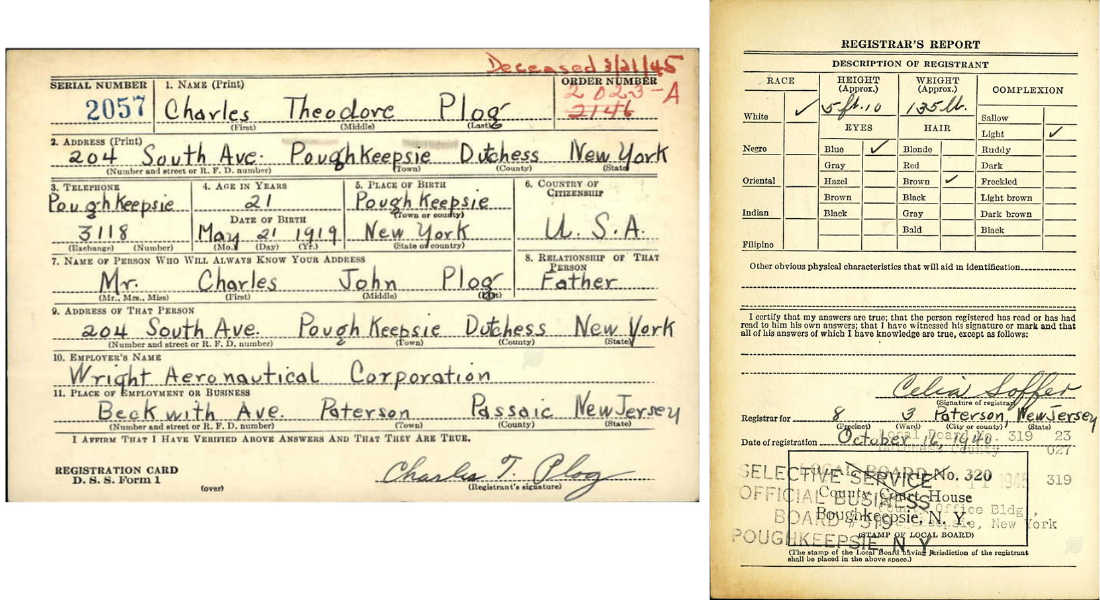 Deceased 3/21/45
SERIAL NUMBER
1. NAME (Print)
ORDER NUMBER
2057
Charles Theodore Plog
2023-A
2146
(First) (Middle) (Last)
2. ADDRESS (Print)
204 South Ave. Poughkeepsie Dutchess New York
(Number and street or R. F. D. number) (Town) (County) (State)
3. TELEPHONE
4. AGE IN YEARS
5. PLACE OF BIRTH
6. COUNTRY OF CITIZENSHIP
Poughkeepsie
21
Poughkeepsie
(Town or county)
DATE OF BIRTH
3118
May 21 1919
New York
U. S. A.
(Exchange) (Number)
(Mo.) (Day) (Yr.)
(State of country)
7. NAME OF PERSON WHO WILL ALWAYS KNOW YOUR ADDRESS
8. RELATIONSHIP OF THAT PERSON
Mr. Charles John Plog
Father
(Mr., Mrs., Miss) (First) (Middle)
9. ADDRESS OF THAT PERSON
204 South Ave. Poughkeepsie Dutchess New York
(Number and street or R. F. D. number) (Town) (County) (State)
10. EMPLOYER'S NAME
Wright Aeronautical Corporation
11. PLACE OF EMPLOYMENT OR BUSINESS
Beckwith Ave. Paterson Passaic New Jersey
(Number and street or R. F. D. number) (Town) (County) (State)
I AFFIRM THAT I HAVE VERIFIED ABOVE ANSWERS AND THAT THEY ARE TRUE.
REGISTRATION CARD
D. S. S. Form 1
(over)
Charles T. Plog
(Registrant's signature)
REGISTRAR'S REPORT
DESCRIPTION OF REGISTRANT
RACE
HEIGHT (Approx.)
WEIGHT (Approx.)
COMPLEXION
White ✓
5 ft. 10
135 lb.
Sallow
EYES
HAIR
Light ✓
Negro
Blue ✓
Blonde
Ruddy
Gray
Red
Dark
Oriental
Hazel
Brown ✓
Freckled
Brown
Black
Light brown
Indian
Black
Gray
Dark brown
Bald
Black
Filipino
Other obvious physical characteristics that will aid in identification
I certify that my answers are true; that the person registered has read or has had
read to him his own answers; that I have witnessed his signature or mark and that
all of his answers of which I have knowledge are true, except as follows:
Celia Soffer
(Signature of registrar)
Registrar for 8 3 Paterson, New Jersey
(Precinct) (Ward) (City or county) (State)
Date of registration October 16, 1940
Local Board No. 319 23
Dutchess County 027
319
LOCAL BOARD No. 320
County Court House
Poughkeepsie, N. Y.
Office Bldg.,
New York
SELECTIVE SERVICE
OFFICIAL BUSINESS
BOARD #319
POUGHKEEPSIE, N. Y.
(STAMP OF LOCAL BOARD)
(The stamp of the Local Board having jurisdiction of the registrant
shall be placed in the above space.)